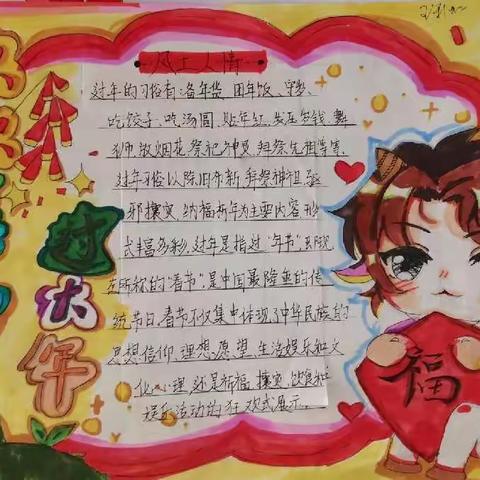 风土人情
过年的习俗有:备年货、团年饭、守岁、
吃饺子、吃汤圆、贴年红、发压岁钱、舞
狮、放烟花、祭祀神灵、拜祭先祖等等,
过年习俗以除旧布新、拜祭神祖、
邪攘灾、纳福祈年为主要内容,形
式丰富多彩,过年是指过“年节”
所称的“春节”,是中国最隆重的传
统节日,春节不仅集中体现了中华民族的
思想信仰、理想愿望、生活娱乐和文
化心理,还是祈福、攘灾、饮食和
娱乐活动的狂欢式展示。
过大年
福